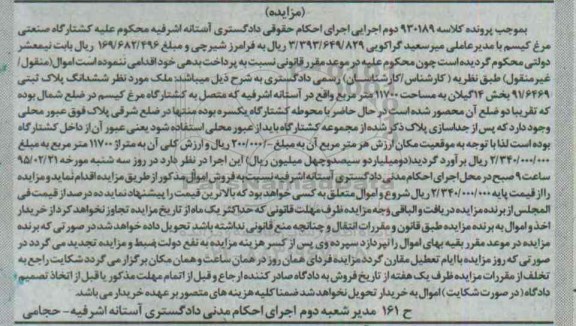 (مزایده)
بموجب پرونده کلاسه ۹۳۰۱۸۹ دوم اجرایی اجرای احکام حقوقی دادگستری آستانه اشرفیه محکوم علیه کشتارگاه صنعتی
مرغ کیسم با مدیرعاملی میرسعید گراکویی ۳/۳۹۳/۶۴۹/۸۲۹ ریال به فرامرز شیرچی و مبلغ ۱۶۹/۶۸۲/۴۹۶ ریال بابت نیمعشر
دولتی محکوم گردیده است چون محکوم علیه در موعد مقرر قانونی نسبت به پرداخت بدهی خود اقدامی ننموده است اموال (منقول/
غیرمنقول) طبق نظریه (کارشناس/کارشناسان) رسمی دادگستری به شرح ذیل میباشد: ملک مورد نظر ششدانگ پلاک ثبتی
۹۱/۶۴۶۹ بخش ۱۴ گیلان به مساحت ۱۱۷۰۰ متر مربع واقع در آستانه اشرفیه که متصل به کشتارگاه مرغ کیسم در ضلع شمال بوده
که تقریبا دو ضلع آن محصور شده است در حال حاضر با محوطه کشتارگاه یکسره بوده منتها در ضلع شرقی پلاک فوق عبور محلی
وجود دارد که پس از جداسازی پلاک ذکر شده از مجموعه کشتارگاه باید از عبور محلی استفاده شود یعنی عبور آن از داخل کشتارگاه
بوده است لذا با توجه به موقعیت مکان ارزش هر متر مربع آن به مبلغ ۲۰۰/۰۰۰/- ریال و ارزش کلی آن به متراژ ۱۱۷۰۰ متر مربع به مبلغ
۲/۳۴۰/۰۰۰/۰۰۰ ریال برآورد گردید (دومیلیارد و سیصدوچهل میلیون ریال) این اجرا در نظر دارد در روز سه شنبه مورخه ۹۵/۰۲/۲۱
ساعت ۹ صبح در محل اجرای احکام مدنی دادگستری آستانه اشرفیه نسبت به فروش اموال مذکور از طریق مزایده اقدام نماید و مزایده
را از قیمت پایه ۲/۳۴۰/۰۰۰/۰۰۰ ریال شروع و اموال متعلق به کسی خواهد بود که بالاترین قیمت را پیشنهاد نماید ده درصد از قیمت فی
المجلس از برنده مزایده دریافت و الباقی وجه مزایده ظرف مهلت قانونی که حداکثر یک ماه از تاریخ مزایده تجاوز نخواهد کرد از خریدار
اخذ و اموال به برنده مزایده طبق قانون و مقررات انتقال و چنانچه منع قانونی نداشته باشد تحویل داده خواهد شد در صورتی که برنده
مزایده در موعد مقرر بقیه بهای اموال را نپردازد سپرده وی پس از کسر هزینه مزایده به نفع دولت ضبط و مزایده تجدید می گردد در
صورتی که روز مزایده با ایام تعطیل مقارن گردد مزایده فردای همان روز در همان ساعت و همان مکان برگزار می گردد شکایت راجع به
تخلف از مقررات مزایده ظرف یک هفته از تاریخ فروش به دادگاه صادر کننده ارجاع و قبل از اتمام مهلت مذکور یا قبل از اتخاذ تصمیم
دادگاه (در صورت شکایت) اموال به خریدار تحویل نخواهد شد ضمنا کلیه هزینه های متصور بر عهده خریدار می باشد.
ح ۱۶۱ مدیر شعبه دوم اجرای احکام مدنی دادگستری آستانه اشرفیه - حجامی